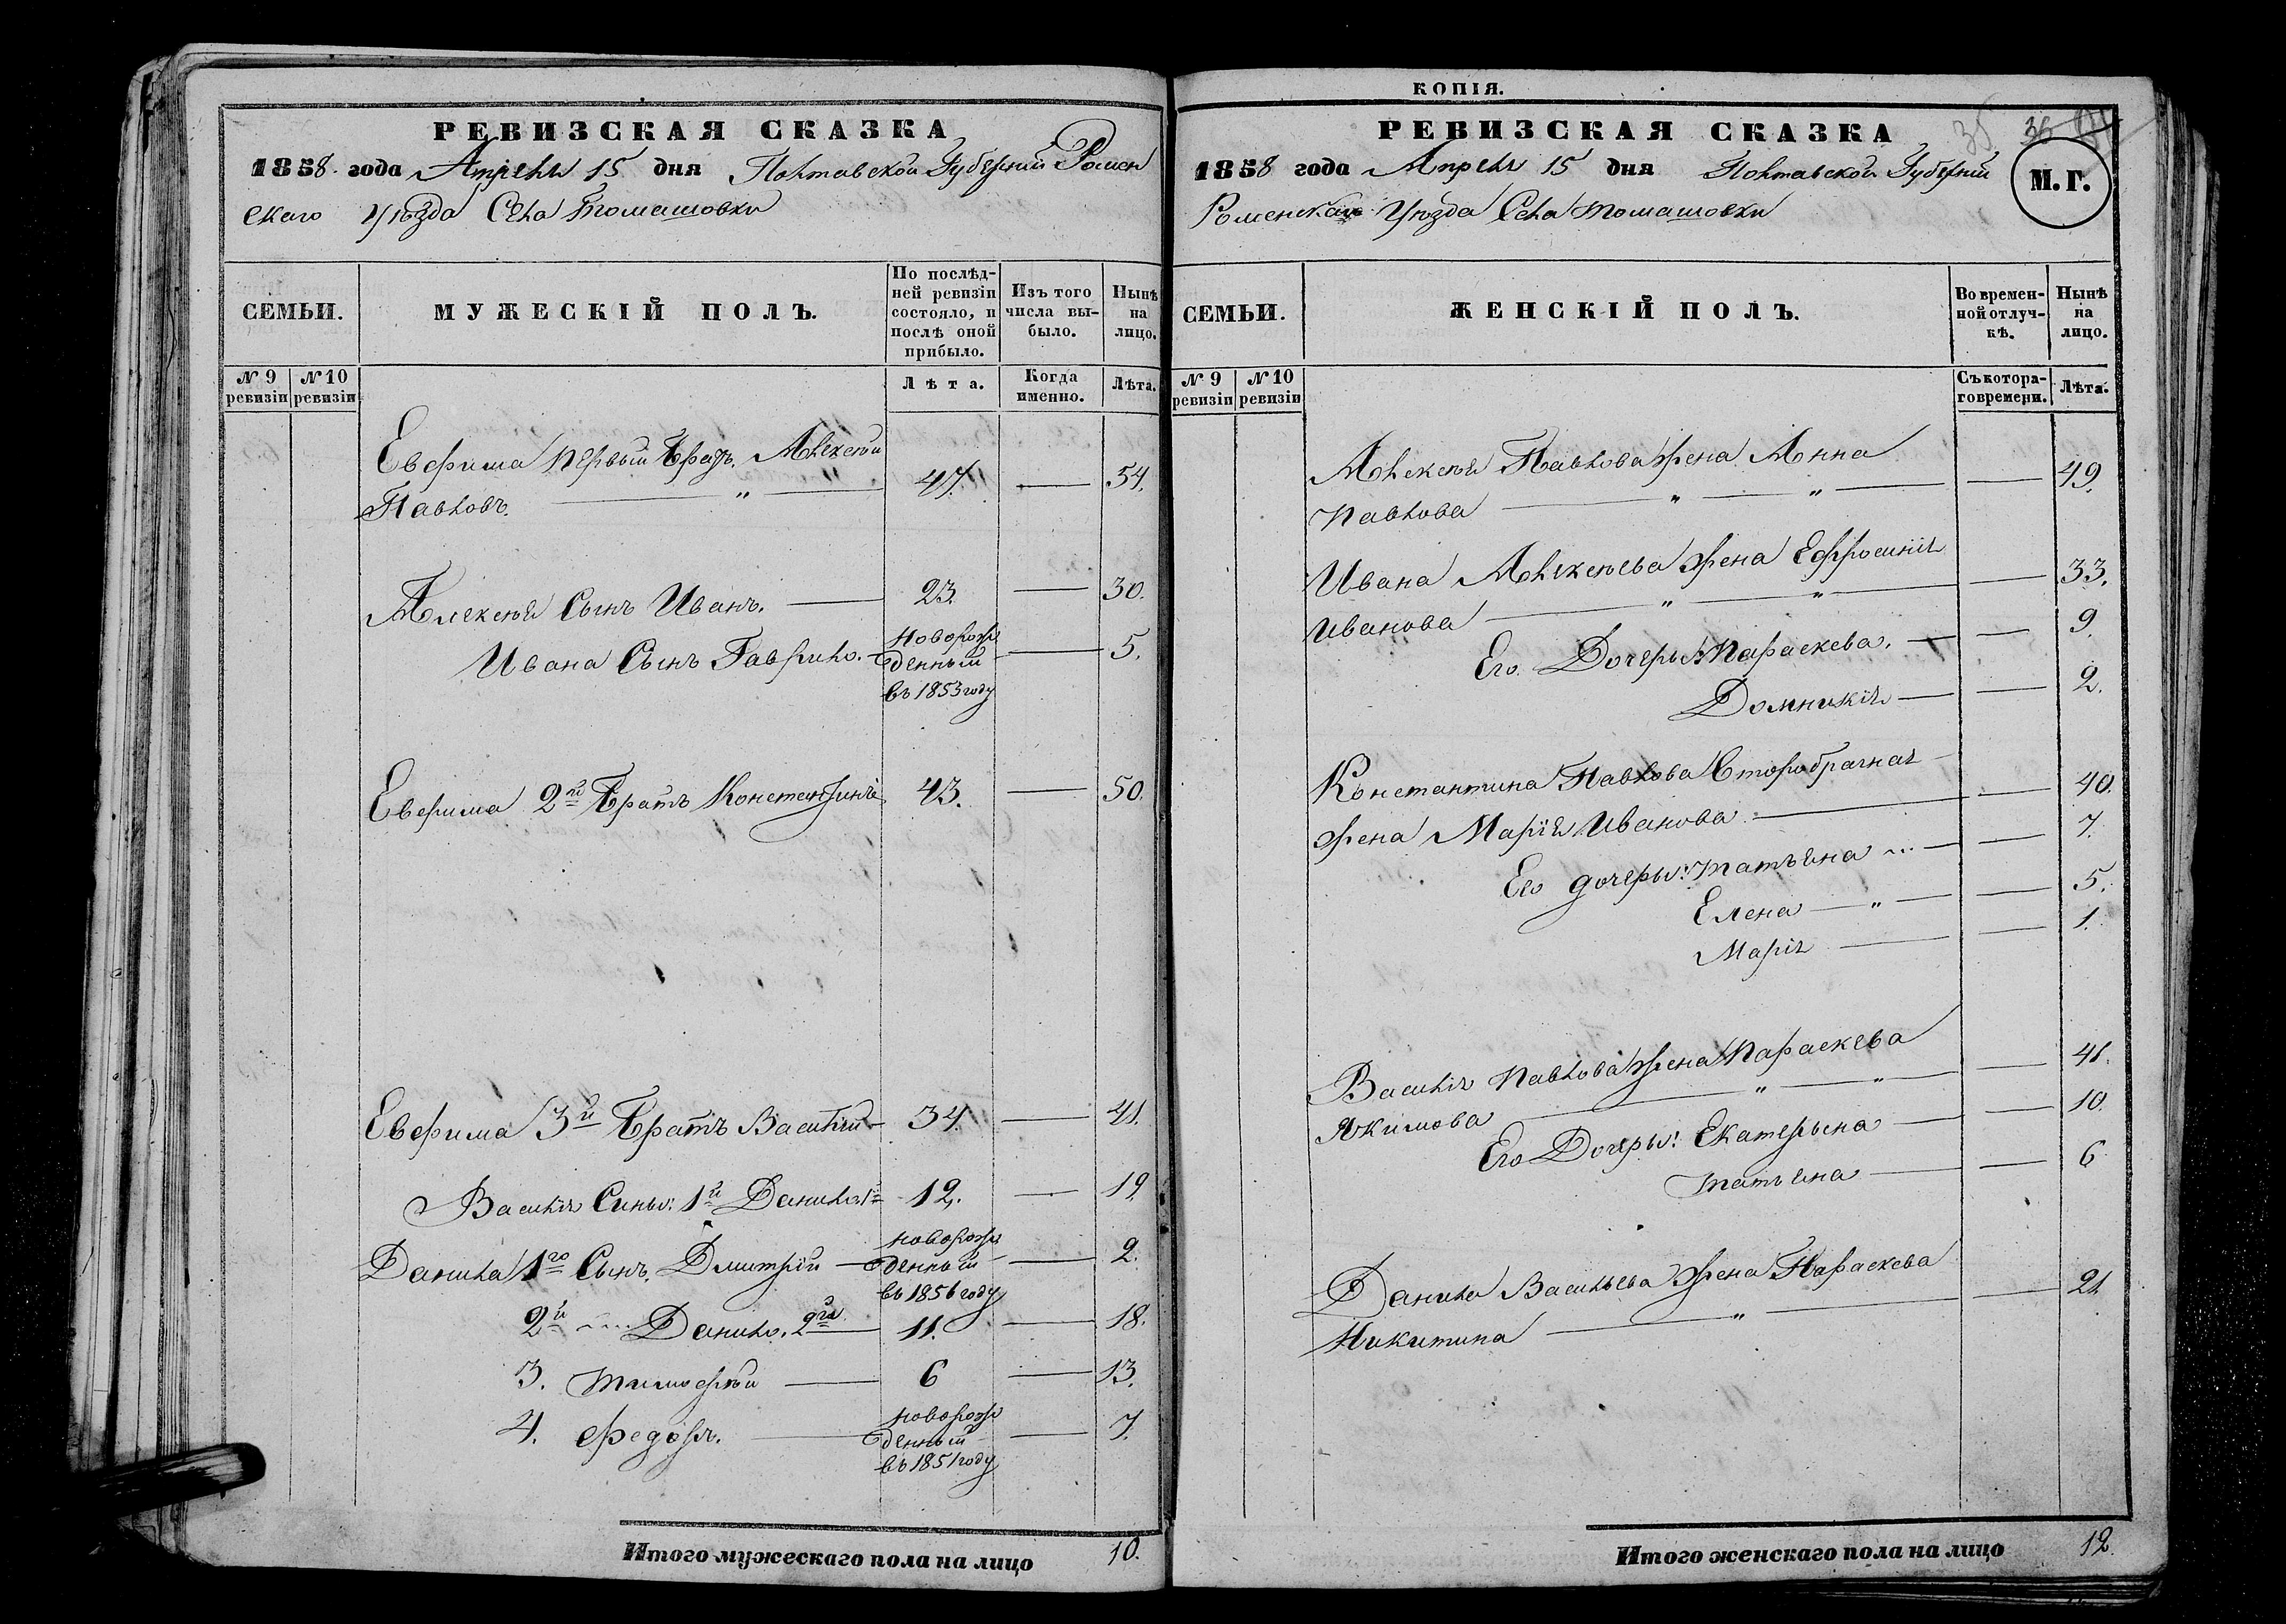 РЕВИЗСКАЯ СКАЗКА
1858 года Апреля 15 дня Полтавской Губерніи Ромен
скаго Уѣзда Села Томашовки
СЕМЬИ.
МУЖЕСКІЙ ПОЛЪ.
По послѣд-
ней ревизіи
состояло, и
послѣ оной
прибыло.
Изъ того
числа вы-
было.
Нынѣ
на
лицо.
№ 9 ревизіи
№ 10 ревизіи
Лѣта.
Когда
именно.
Лѣта.
Евфима первый братъ Алексѣй
Павловъ. — " — 47. — 54.
Алексѣя Сынъ Иванъ. — 23. — 30.
Ивана Сынъ Гаврило. — новорож
денный — 5.
въ 1853 году
Евфима 2й Братъ Константинъ 43. — 50.
Евфима 3й Братъ Василій — 34. — 41.
Василія Сины: 1й Данило 1й 12. — 19.
Данила 1го Сынъ Дмитрій — новорож
денный — 2.
въ 1856 году
2й Данило 2й — 11. — 18.
3. Тимофѣй — 6 — 13.
4. Федоръ. — новорож
денный — 7.
въ 1851 году
Итого мужескаго пола на лицо 10.
КОПІЯ.
35 36
РЕВИЗСКАЯ СКАЗКА
1858 года Апреля 15 дня Полтавской Губерніи
М.Г.
Роменскаго Уѣзда Села Томашовки
СЕМЬИ.
ЖЕНСКІЙ ПОЛЪ.
Во времен-
ной отлуч-
кѣ.
Нынѣ
на
лицо.
№ 9 ревизіи
№ 10 ревизіи
Съ котора-
го времени.
Лѣта.
Алексѣя Павлова жена Анна
Павлова — " — " — 49.
Ивана Алексѣева жена Ефросинія
Иванова — " — " — 33.
Его Дочеры: Параскева. — — 9.
Домникія — — 2.
Константина Павлова Второбрачная
жена Марія Иванова — — 40.
Его дочеры: Татьяна — — 7.
Елена — " — — 5.
Марія — — 1.
Василія Павлова жена Параскева
Якимова — " — " — 41.
Его Дочеры: Екатерына — — 10.
Татьяна — — 6
Данила Васильева жена Параскева
Никитина — " — — 21
Итого женскаго пола на лицо 12.